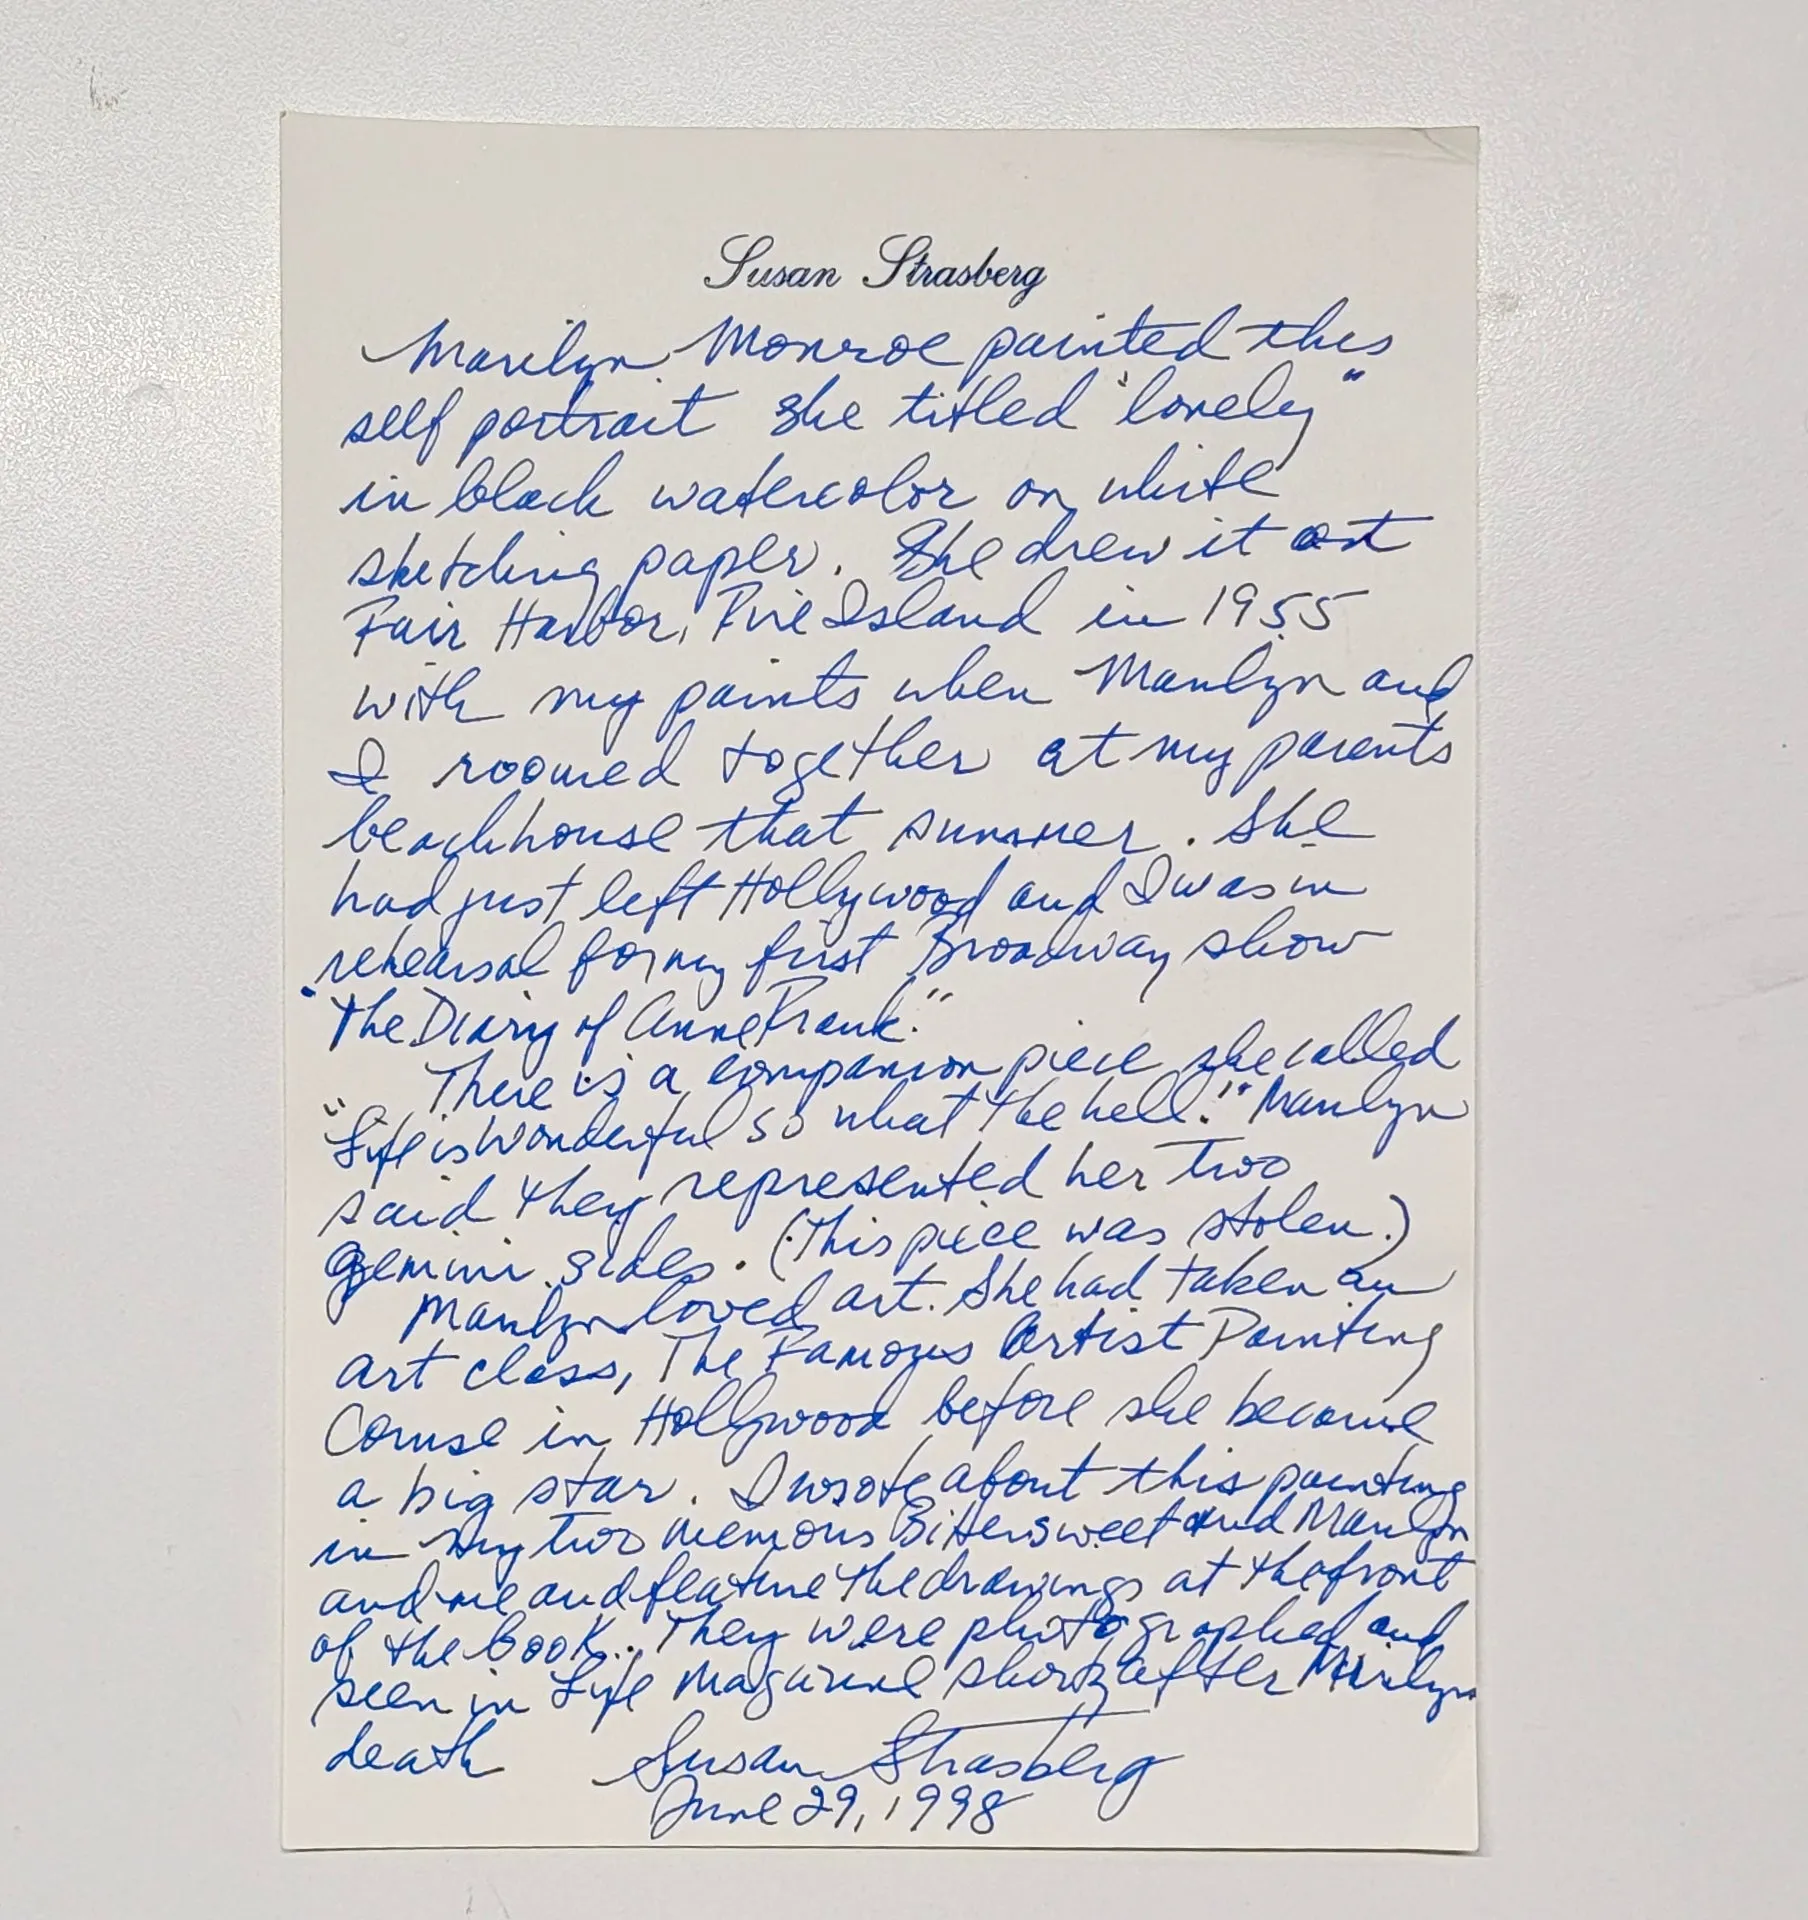 Susan Strasberg
Marilyn Monroe painted this
self portrait she titled "lonely"
in black watercolor on white
sketching paper. She drew it at
Fair Harbor, Fire Island in 1955
with my paints when Marilyn and
I roomed together at my parents
beachhouse that summer. She
had just left Hollywood and I was in
rehearsal for my first Broadway show
"The Diary of Anne Frank."
There is a companion piece she called
"Life is Wonderful so what the hell!" Marilyn
said they represented her two
gemini sides. (This piece was stolen.)
Marilyn loved art. She had taken an
art class, The Famous Artist Painting
Course in Hollywood before she became
a big star. I wrote about this painting
in my two memoirs Bittersweet and Marilyn
and me and feature the drawings at the front
of the book. They were photographed and
seen in Life Magazine shortly after Marilyn
death
Susan Strasberg
June 29, 1998